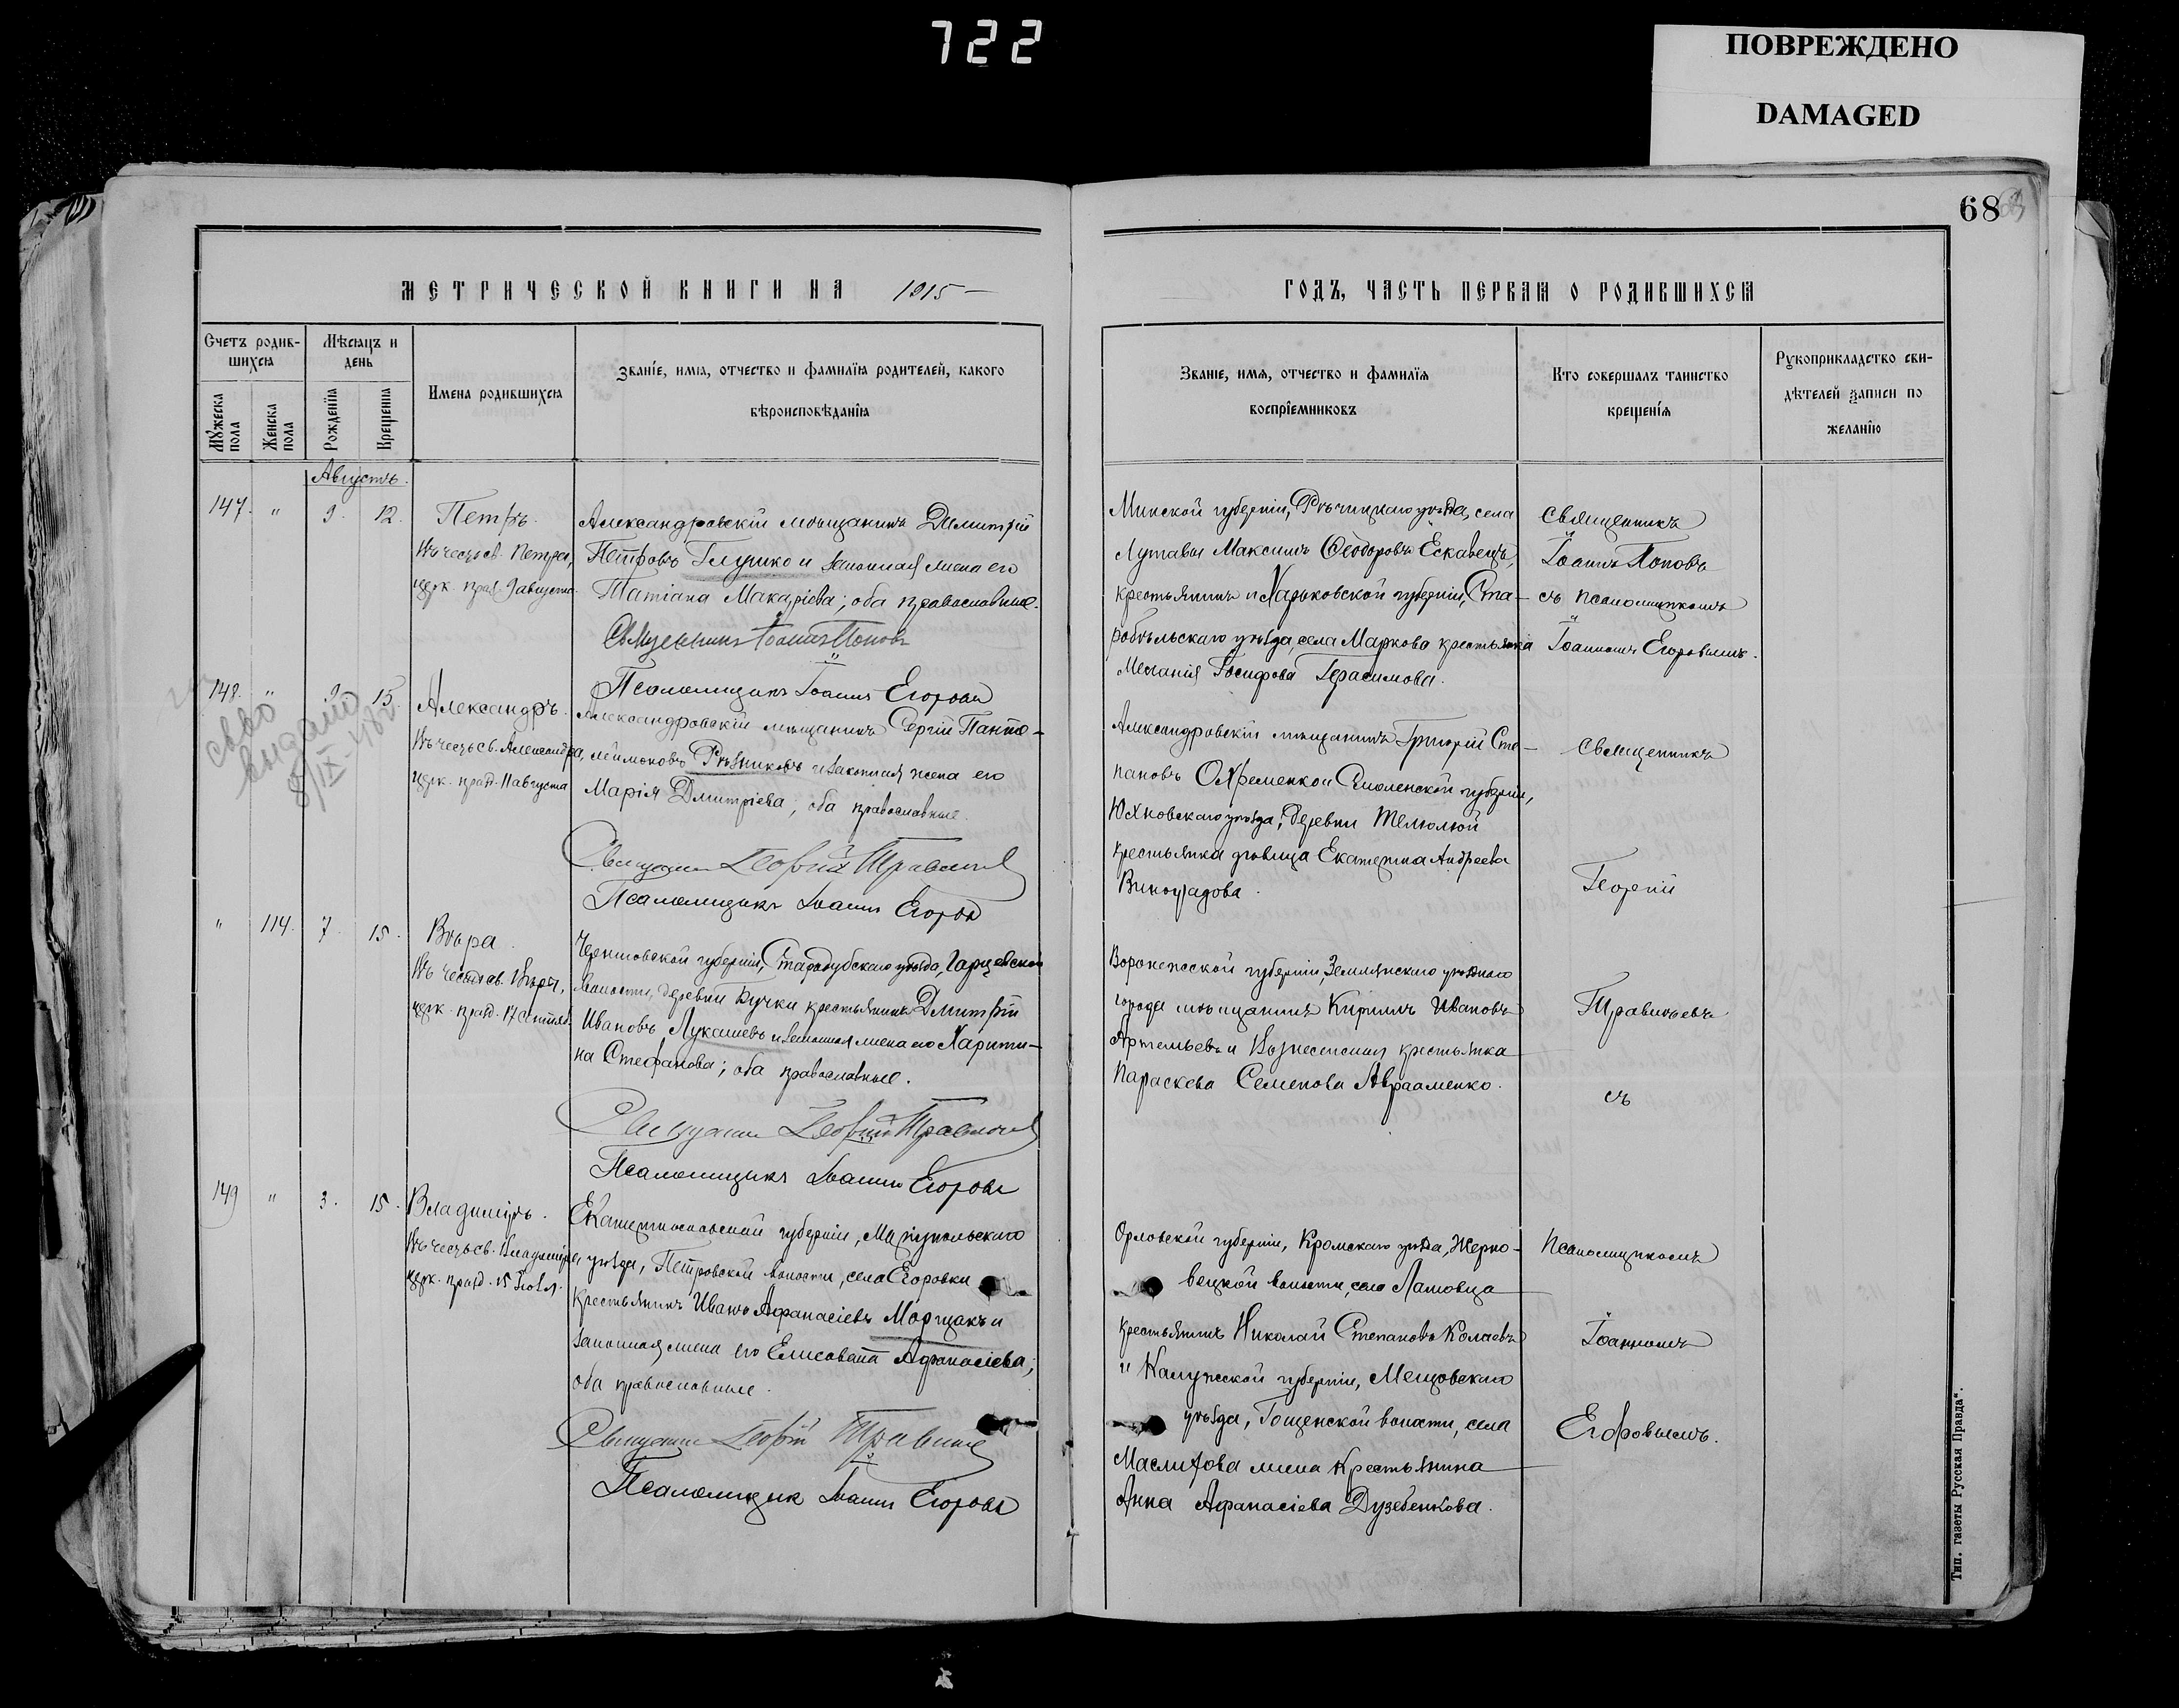 722
ПОВРЕЖДЕНО
DAMAGED
68
МЕТРИЧЕСКОЙ КНИГИ НА 1915 —
Счетъ родив-
шихся
Мѣсяцъ и
день
Мужеска
пола
Женска
пола
Рожденія
Крещенія
Имена родившихся
Званіе, имя, отчество и фамилія родителей, какого
вѣроисповѣданія
Августъ.
147. " 9. 12.
Петръ.
Въ честь св. Петра,
церк. празд. 9 августа.
Александровскій мѣщанинъ Димитрій
Петровъ Глушко и законная жена его
Татіана Макаріева; оба православные.
Священникъ Іоаннъ Поповъ
Псаломщикъ Іоаннъ Егоровъ
148. " 9. 15.
св-во
выдано
8/IX-
Александръ.
Въ честь св. Александра,
церк. празд. 11 августа
Александровскій мѣщанинъ Сергій Панте-
леимоновъ Рѣзниковъ и законная жена его
Марія Дмитріева, оба православные.
Священникъ Георгій
Псаломщикъ Іоаннъ Егоровъ
" 114. 7. 15.
Вѣра.
Въ честь св. Вѣры,
церк. празд. 17 сентяб.
Черниговской губерніи, Стародубскаго уѣзда, Гарцевской
волости, деревни Бучки крестьянинъ Дмитрій
Ивановъ Лукашевъ и законная жена его Харити-
на Стефанова; оба православные.
Священникъ Георгій
Псаломщикъ Іоаннъ Егоровъ
149 " 3. 15.
Владиміръ.
Въ честь св. Владиміра,
церк. празд. 15 Іюля.
Екатеринославской губерніи, Маріупольскаго
уѣзда, Петровской волости, села Егоровки
крестьянинъ Иванъ Афанасіевъ и
законная жена его Елисавета Афанасіева;
оба православные.
Священникъ Георгій
Псаломщикъ Іоаннъ Егоровъ
ГОДЪ, ЧАСТЬ ПЕРВАЯ О РОДИВШИХСЯ
Званіе, имя, отчество и фамилія
воспріемниковъ
Кто совершалъ таинство
крещенія
Рукоприкладство сви-
дѣтелей записи по
желанію
Минской губерніи, Рѣчицкаго уѣзда, села
Лутавы Максимъ Ѳеодоровъ
крестьянинъ и Харьковской губерніи, Ста-
робѣльскаго уѣзда, села Маркова крестьянка
Меланія Іосифова Герасимова.
Александровскій мѣщанинъ Григорій Сте-
пановъ Охременко и Смоленской губерніи,
Юхновскаго уѣзда, деревни
крестьянка дѣвица Екатерина Андреева
Виноградова.
Воронежской губерніи, Землянскаго уѣзднаго
города мѣщанинъ Кириллъ Ивановъ
Артемьевъ и Вознесенская крестьянка
Параскева Семенова Авраменко.
Орловской губерніи, Кромскаго уѣзда, Жерно-
вецкой волости, села Ламовца
крестьянинъ Николай Степановъ
и Калужской губерніи, Мещовскаго
уѣзда, волости, села
жена крестьянина
Анна Афанасіева
Священникъ
Іоаннъ Поповъ
съ псаломщикомъ
Іоанномъ Егоровымъ.
Священникъ
Георгій
съ
Псаломщикомъ
Іоанномъ
Егоровымъ.
Тип. газеты „Русская Правда“.